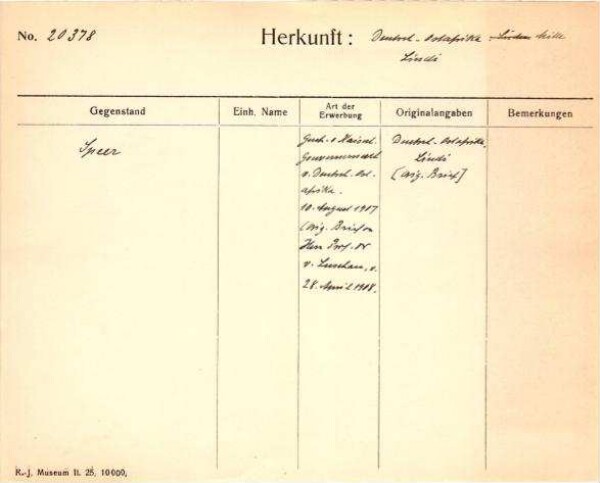 No. 20378
Herkunft: Deutsch-Ostafrika
Lindi
Gegenstand
Einh. Name
Art der Erwerbung
Originalangaben
Bemerkungen
Speer
Gesch. v. Kaiserl.
Gouvernement
v. Deutsch-Ost-
afrika.
10. August 1907
(Orig. Brief an
Herr Prof. Dr
v. Luschan, v.
28. April 1908.
Deutsch-Ostafrika,
Lindi
(Orig. Brief)
R.-J. Museum II. 25, 10000,